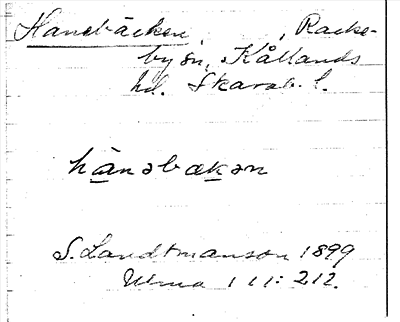 Hanebäcken, , Racke-
by sn, Kållands
hd. Skarab. l.
hanəbækən
S. Landtmanson 1899
Utma 111: 212.